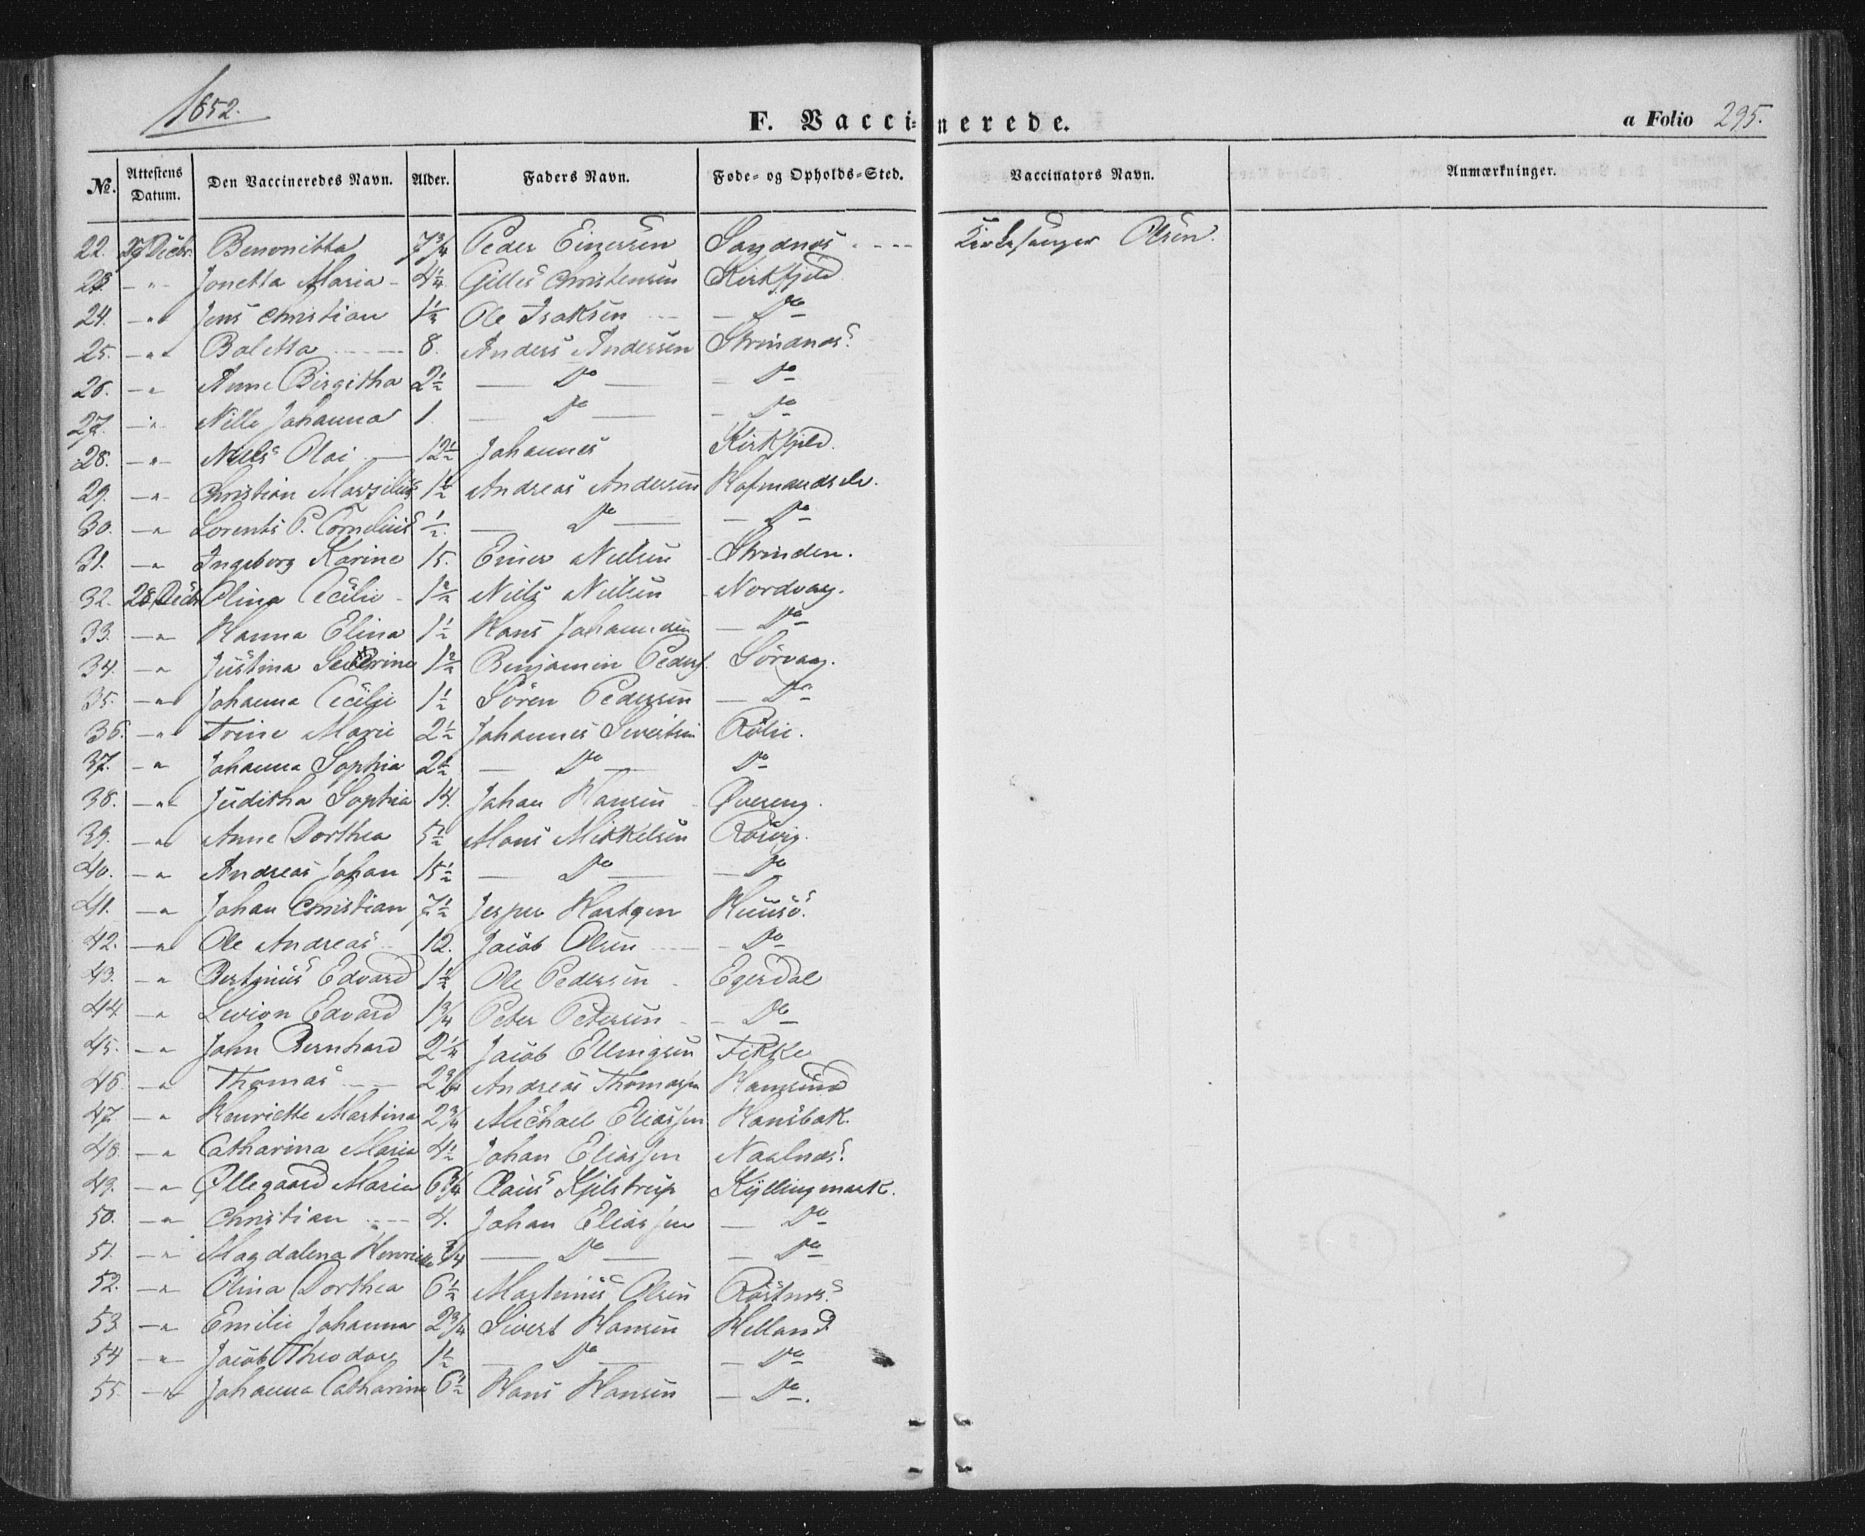 1852.
F. Vaccinerede.
a Folio 295.
No. Attestens Datum. Den Vaccineredes Navn. Alder. Faders Navn. Føde- og Opholds-Sted. Vaccinators Navn. Anmærkninger.
22. 27 Decbr. Benonitta 7 3/4 Peder Einersen Sandnæs Kirkesanger Olsen.
23 - " - Jonetta Maria 4 1/4 Gilles Christensen Kirkfjeld
24. - " Jens Christian 1 1/2 Ole Isaksen - Do -
25. - " Boletta 8. Anders Andersen Strindnæs.
26. - " Anne Birgitha 2 1/2 - Do - - Do -
27. - " Nille Johanna 1. - Do - - Do -
28. - " Niels Olai 12 1/2 Johannes Kirkfjeld.
29. - " Christian Marzilius 1 1/2 Andreas Andersen
30. - " Lorents P. Cornelius 1/2. - Do - - Do -
31. - " Ingeborg Karine 15. Einer Nielsen Strinden.
32. 28 Decbr Olina Cecilie 1 1/2 Niels Nielsen Nordvag.
33. - " Hanna Elina 1 1/2 Hans Johansen - Do -
34. - " Justina Severine 1 1/2 Benjamin Peders. Sörvag.
35. - " Johanna Cecilie 1 1/2 Sören Pedersen - Do -
36. - " Trine Marie 2 1/2 Johannes Sivertsen Rölie.
37. - " Johanna Sophia 2 1/2 - Do - Do -
38. - " Juditha Sophia 14. Johan Hansen Øvereng.
39. - " Anne Dorthea 5 1/2 Mons Mikkelsen Rösvig.
40. - " Andreas Johan 15 1/2 - Do - - Do -
41. - " Johan Christian 7 1/2 Jesper Hartgen Huusö.
42. - " Ole Andreas 12. Jacob Olsen - Do -
43. - " Bertinius Edvard 1 1/2 Ole Pedersen Egerdal
44 - " Livion Edvard 1 3/4 Peter Petersen - Do -
45. - " John Bernhard 2 1/4 Jacob Ellingsen Fikke
46. - " Thomas 2 3/4 Andreas Thomassen Hamsund
47. - " Henriette Martina 2 3/4 Michael Eliassen Hansbak.
48. - " Catharina Maria 4 1/2 Johan Eliassen Naalnæs.
49. - " Øllegaard Maria 6 3/4 Claus Kjilstrup Kyllingmark.
50. - " Christian 4. Johan Eliassen - Do -
51. - " Magdalena Henriette 3/4 - Do - - Do -
52. - " Olina Dorthea 6 1/2 Martinus Olsen Röstnæs.
53 - " Emilie Johanna 2 3/4 Sivert Hansen Helland
54 - " Jacob Theodor 1 1/2 - Do - - Do -
55. - " Johanna Catharina 6 1/2 Hans Hansen - Do -.